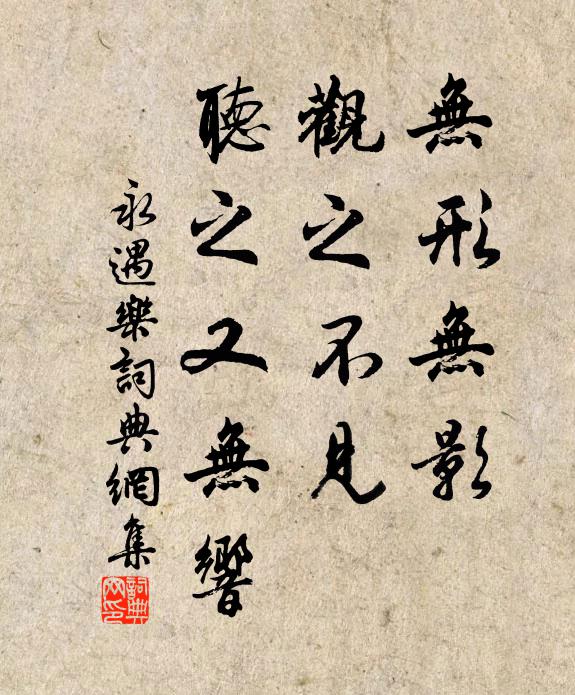 無形無影
觀之不見
聽之又無響
永遇樂詞典網集
詞典
网印